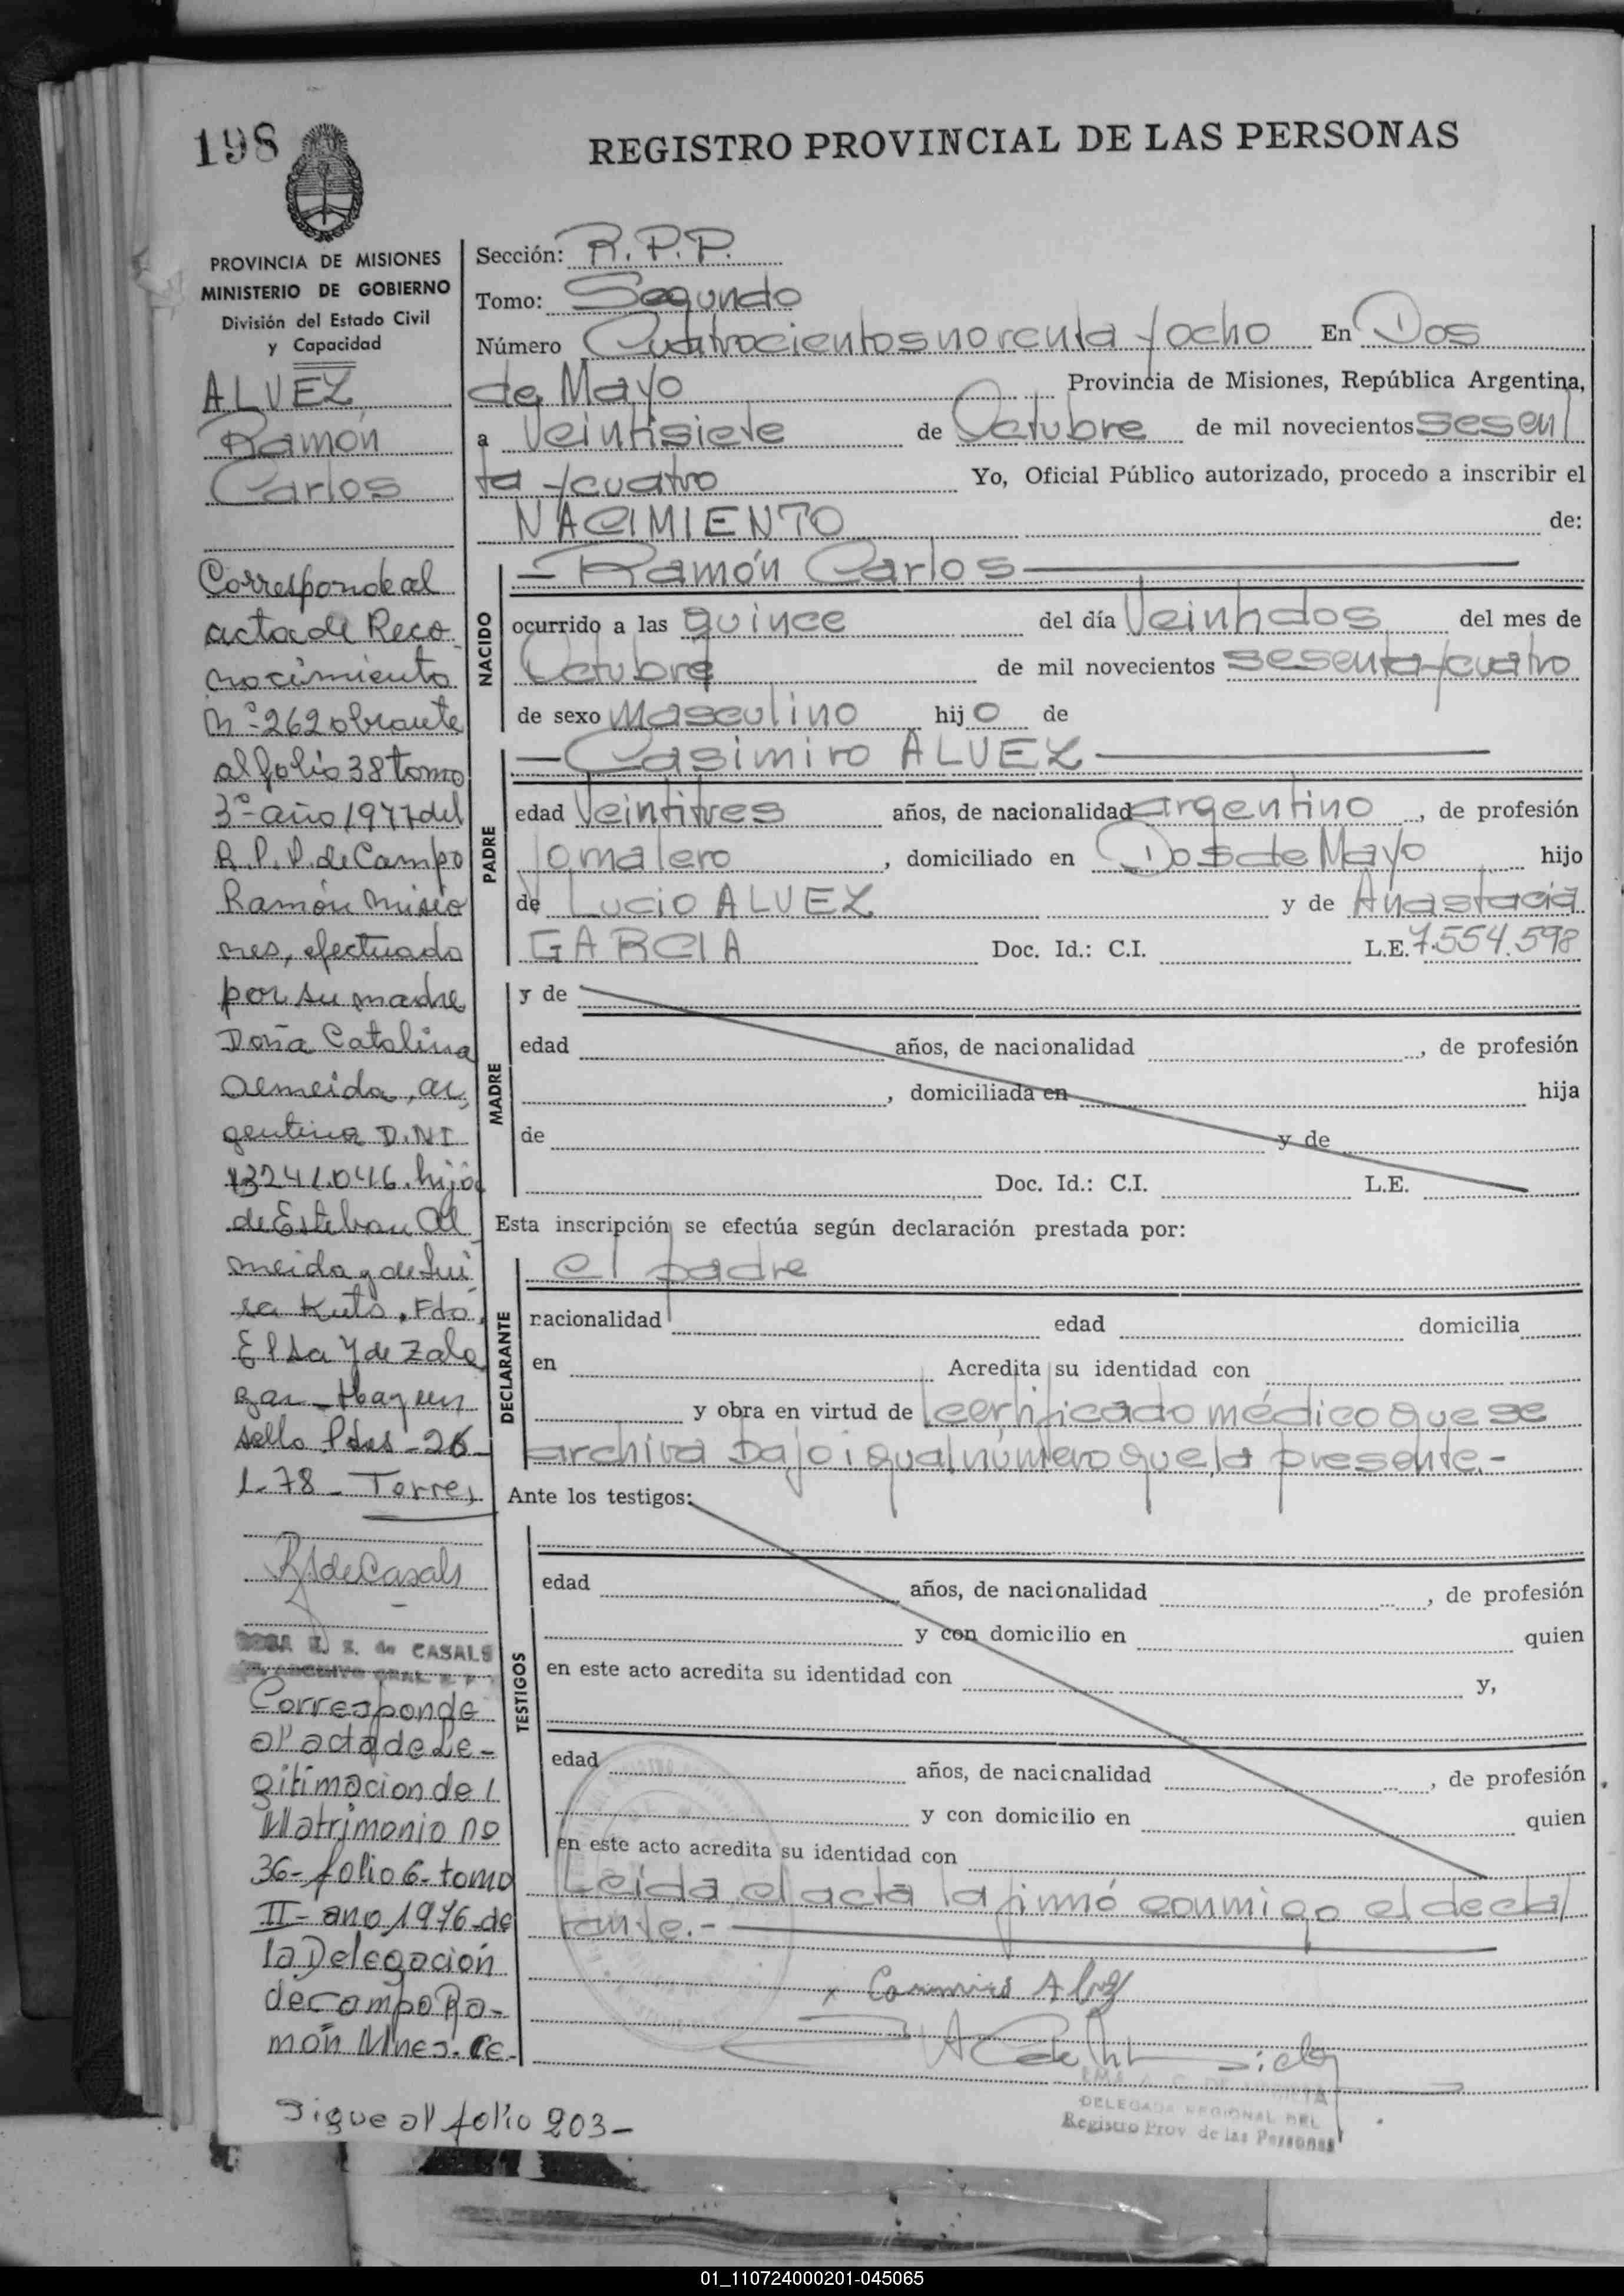 198
REGISTRO PROVINCIAL DE LAS PERSONAS
PROVINCIA DE MISIONES
MINISTERIO DE GOBIERNO
División del Estado Civil
y Capacidad
ALVEZ
Ramón
Carlos
Corresponde al
acta de Reco
nocimiento
Nº 262 obrante
al folio 38 tomo
3º año 1977 del
R.P.P. de Campo
Ramón Misio
nes, efectuado
por su madre
Doña Catalina
Almeida, ar
gentina D.NI
13241.046. hija
de Esteban Al
meida y de Lui
sa Kuts. Fdo.
Elsa Y de Zala
zar - Hay un
sello Pdas - 26-
1-78 - Torres
RJ de Casals
de CASALS
Corresponde
al acta de Le-
gitimacion de l
Matrimonio no
36- folio 6- tomo
II- ano 1976- de
la Delegación
de campo Ra-
món Mnes. CE-
Sigue al folio 203-
Sección: R.P.P.
Tomo: Segundo
Número Cuatrocientos noventa y ocho En Dos
de Mayo Provincia de Misiones, República Argentina,
a Veintisiete de Octubre de mil novecientos sesen
ta y cuatro Yo, Oficial Público autorizado, procedo a inscribir el
NACIMIENTO de:
NACIDO
— Ramón Carlos —
ocurrido a las quince del día Veintidos del mes de
Octubre de mil novecientos sesenta y cuatro
de sexo masculino hijo de
PADRE
— Casimiro ALVEZ —
edad Veintitres años, de nacionalidad argentino, de profesión
Jornalero, domiciliado en Dos de Mayo hijo
de Lucio ALVEZ y de Anastacia
GARCIA Doc. Id.: C.I. L.E. 7.554.598
MADRE
y de
edad años, de nacionalidad , de profesión
, domiciliada en hija
de y de
Doc. Id.: C.I. L.E.
Esta inscripción se efectúa según declaración prestada por:
DECLARANTE
el padre
nacionalidad edad domicilia
en Acredita su identidad con
y obra en virtud de certificado médico que se
archiva bajo igual número que la presente.-
Ante los testigos:
TESTIGOS
edad años, de nacionalidad , de profesión
y con domicilio en quien
en este acto acredita su identidad con y,
edad años, de nacionalidad , de profesión
y con domicilio en quien
en este acto acredita su identidad con
Leída el acta la firmó conmigo el decla
rante.-
x Casimiro Alvez
DELEGADA REGIONAL DEL
Registro Prov de las Personas
01_110724000201-045065